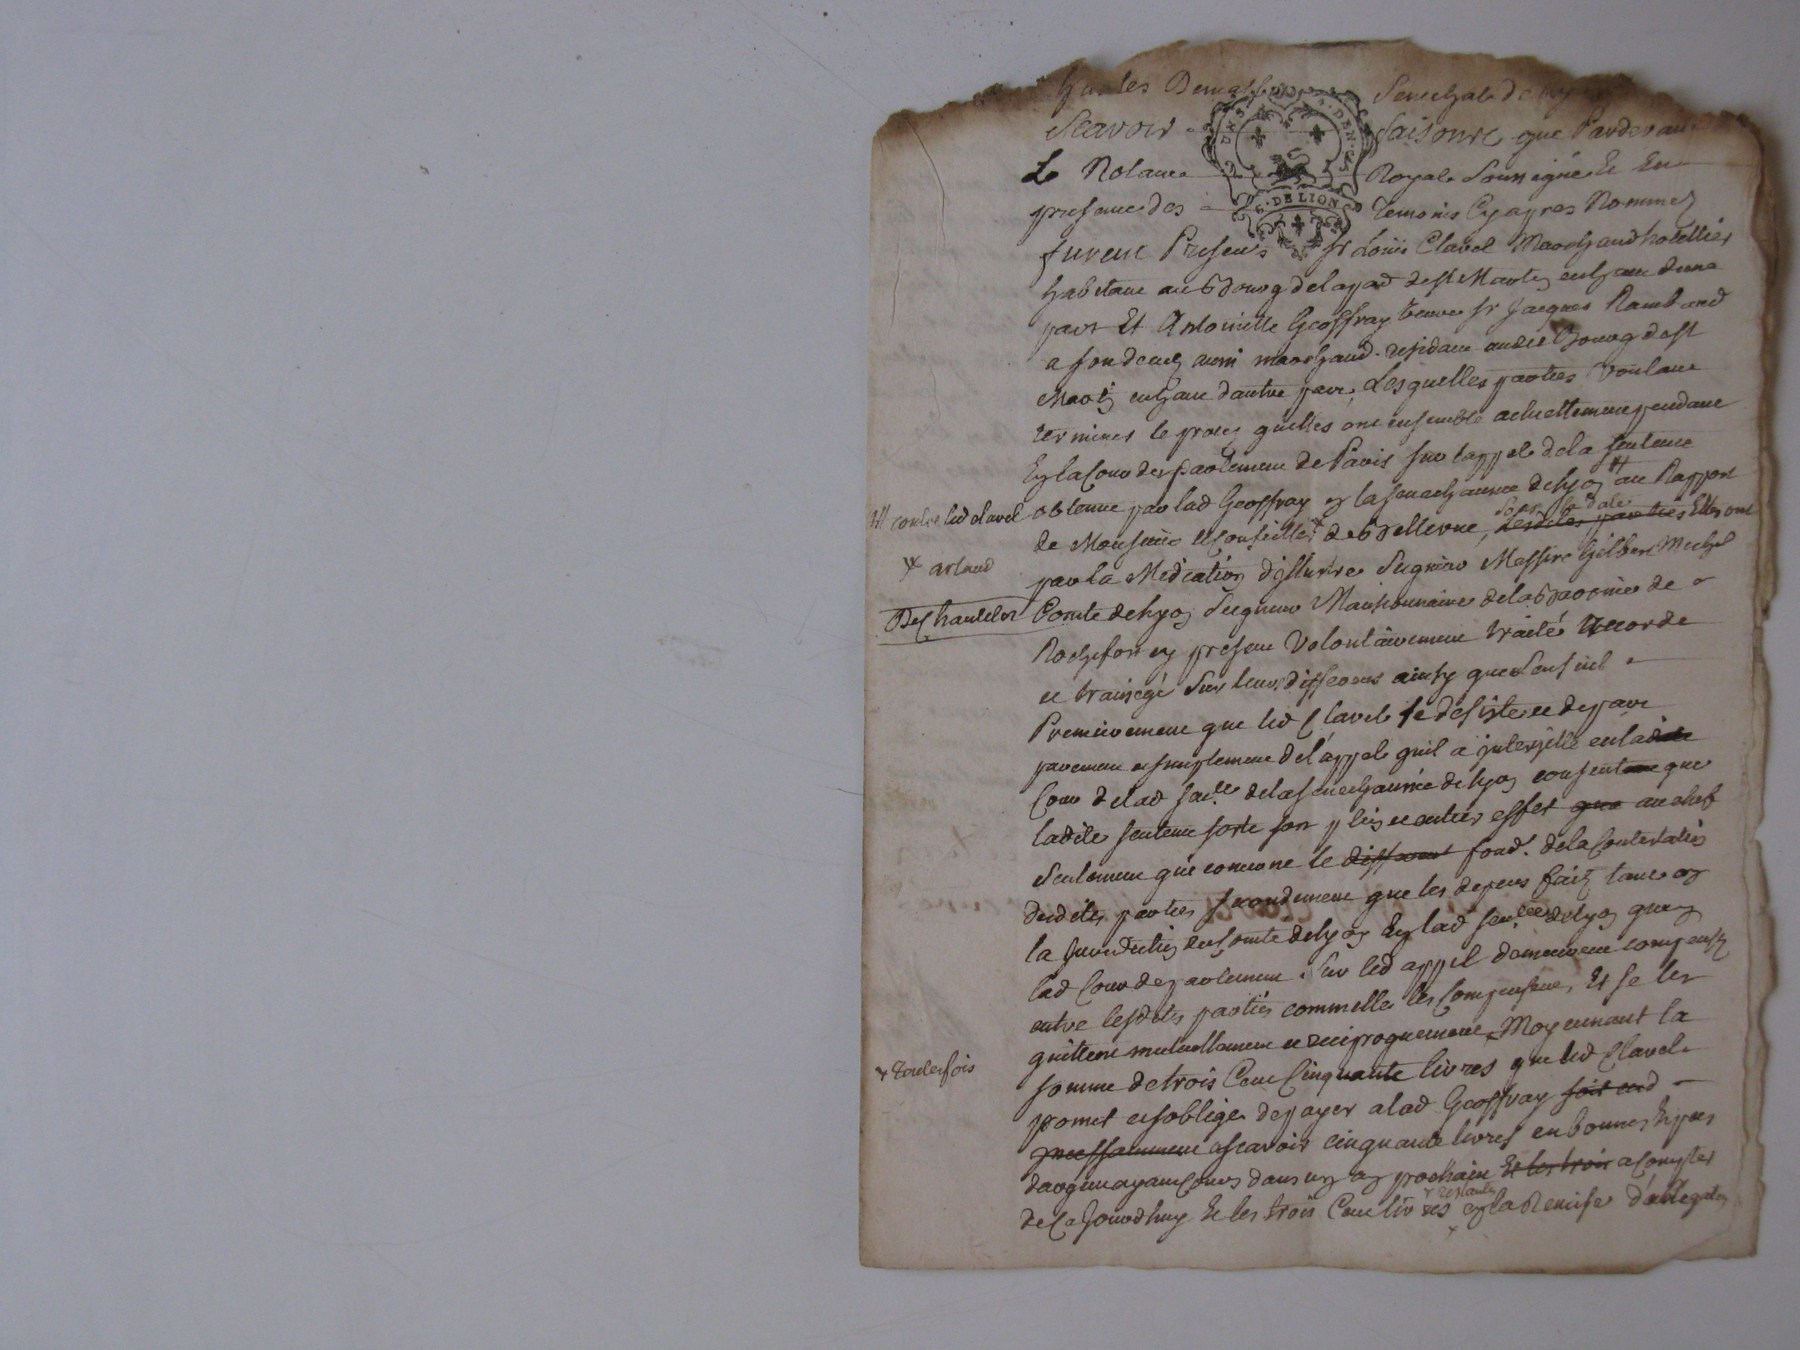 Senechal de
Scavoir faisons que Pardevan
Le Notaire Royal soussigné Et En
presence des Temoins Cyapres Nommez
G. DE LION
furent Presens Sr Loüis Clavel Marchand hotellier
habitant au Bourg delapad de st Martin en hau duna
part Et Antoinette Geoffray veuve Sr Jacques Rambaud
marchand residant audit Bourg de st
Martin en hau dautre part, Lesquelles parties Voulant
terminer le proces quelles ont ensemble actuellement pendant
En la Cour de parlement de Paris sur lappel de la sentence
# contre led clavel
obtenue par lad Geoffray en la senechaussée de Lyon # au Rapport
de Monsieur le Conseiller x de Bellevue, lesdites parties Elles ont
x artaud
par la Mediation dillustre Seigneur Messire Gilbert Michel
De Chantelot
Comte de Lyon Seigneur Mansionnaire de la Baronnie de
Rochefort cy present Volontairement traité accordé
et transigé sur leurs differens ainsy que sensuit
Premierement que led Clavel se desiste et depart
purement et simplement de l'appel quil a interjetté en ladite
Cour de lad sen.ce de la senechaussée de Lyon consentant que
ladite sentence sorte son plein et entier effet que au chef
seulement qui concerne le different fond. de la Contestation
desdites parties secondement que les depens faits tant en
la Jurisdiction du Comté de Lyon En lad sen.cée de Lyon quen
lad Cour de parlement sur led appel demeurent compensez
entre lesdites parties comme elles les compensent, Et se les
quittent mutuellement et reciproquement x Moyennant la
x toutesfois
somme de trois Cent Cinquante livres que led Clavel
promet et soblige de payer a lad Geoffray
incessamment ascavoir cinquante livres en bonnes Especes
dargent ayant Cours dans un an prochain Et les trois a Compter
de Cejourdhuy Et les trois Cent livres restantes en la Remise